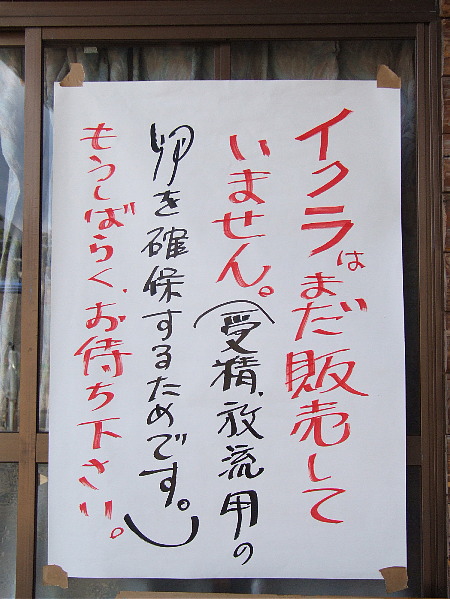 イクラはまだ販売して
いません。(受精、放流用の
卵を確保するためです。)
もうしばらく、お待ち下さい。